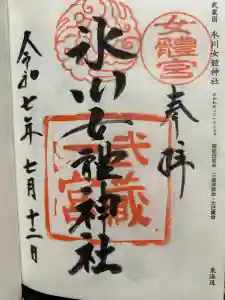 武蔵国 氷川女體神社
女體宮
奉拝
氷川女體神社
武蔵
宮
令和七年七月十二日
東海道